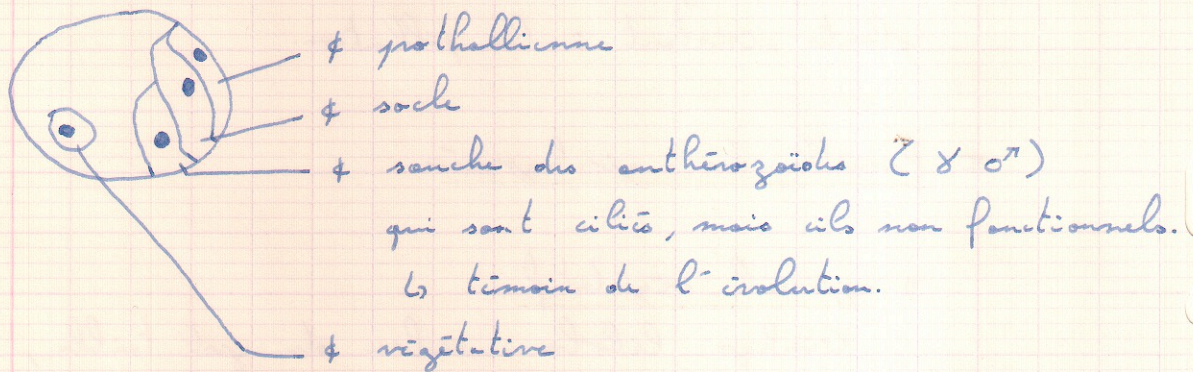 ¢ prothallienne
¢ socle
¢ souche des anthérozoïdes (γ ♂)
qui sont ciliés, mais cils non fonctionnels.
↳ témoin de l'évolution.
¢ végétative